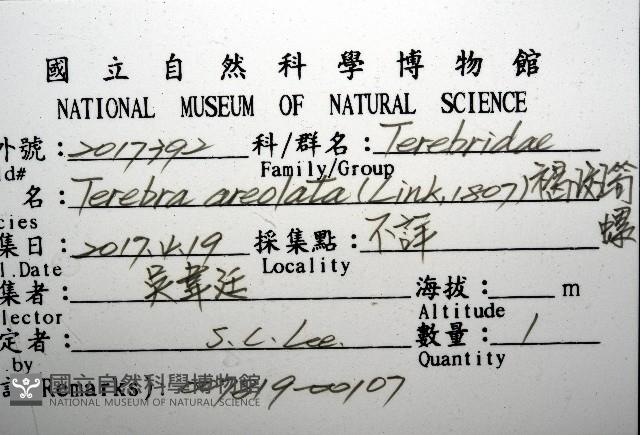 國立自然科學博物館
NATIONAL MUSEUM OF NATURAL SCIENCE
外號：2017-392 科/群名：Terebridae
ld# Family/Group
名：Terebra areolata (Link, 1807) 褐斑筍螺
cies
集日：2017.4.19 採集點：不詳
l.Date Locality
集者：吳韋廷 海拔： m
llector Altitude
定者： S.C.Lee. 數量：1
by Quantity
Remarks):
國立自然科學博物館
NATIONAL MUSEUM OF NATURAL SCIENCE